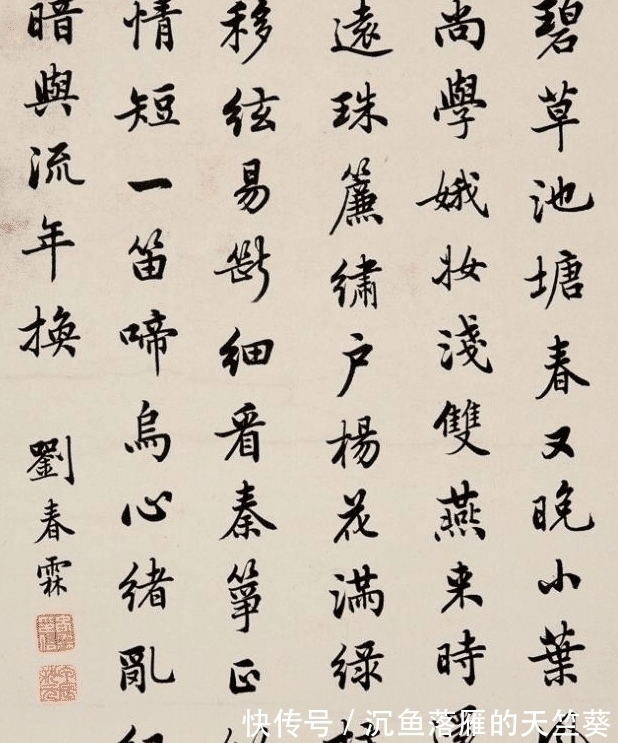 碧草池塘春又晚小葉
尚學娥妝淺雙燕来時
遠珠簾繡户楊花滿緑
移絃易斷細看秦箏正
情短一笛啼烏心緒亂
暗與流年換
劉春霖
快传号 / 沉鱼落雁的天竺葵